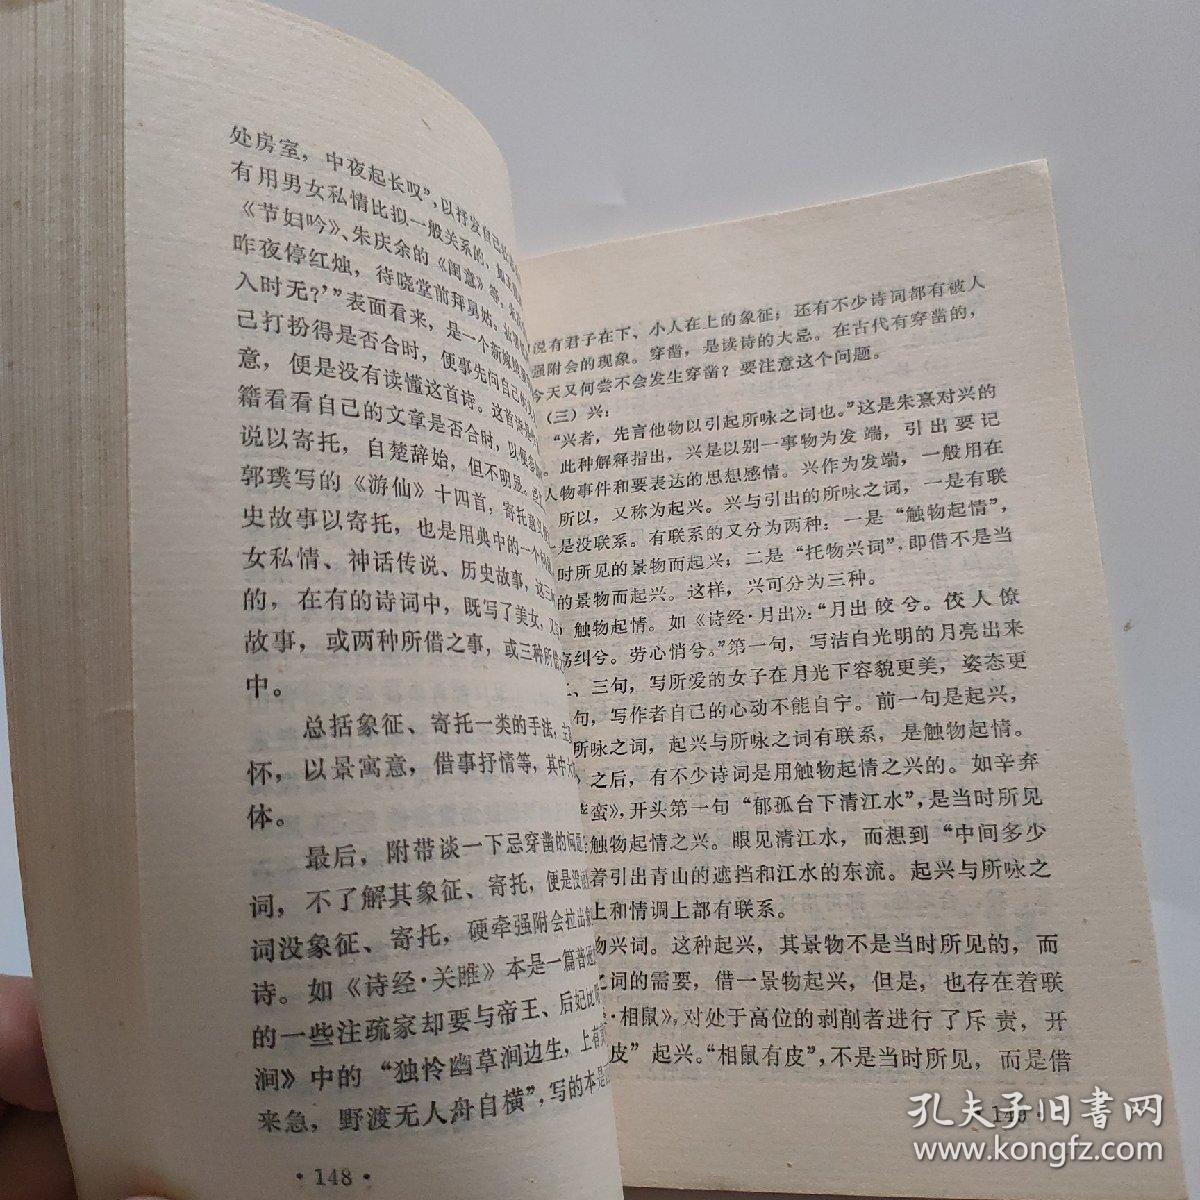 处房室，中夜起长叹”，以抒发自己
有用男女私情比拟一般关系的，
《节妇吟》、朱庆余的《闺意》等，
昨夜停红烛，待晓堂前拜舅姑，
入时无？’”表面看来，是一个新嫁
己打扮得是否合时，便事先问自己的
意，便是没有读懂这首诗。这首诗
籍看看自己的文章是否合时，以
说以寄托，自楚辞始，但不明显。
郭璞写的《游仙》十四首，寄托
史故事以寄托，也是用典中的一个
女私情、神话传说、历史故事，这三
的，在有的诗词中，既写了美女，又
故事，或两种所借之事，或三种所借
中。
总括象征、寄托一类的手法，主
怀，以景寓意，借事抒情等，其中
体。
最后，附带谈一下忌穿凿的问题
词，不了解其象征、寄托，便是没
词没象征、寄托，硬牵强附会拉出
诗。如《诗经·关雎》本是一篇普通
的一些注疏家却要与帝王、后妃比附
涧》中的“独怜幽草涧边生，上有黄
来急，野渡无人舟自横”，写的本是
·148·
说有君子在下、小人在上的象征；还有不少诗词都有被人
强附会的现象。穿凿，是读诗的大忌。在古代有穿凿的，
今天又何尝不会发生穿凿？要注意这个问题。
（三）兴：
“兴者，先言他物以引起所咏之词也。”这是朱熹对兴的
此种解释指出，兴是以别一事物为发端，引出要记
人物事件和要表达的思想感情。兴作为发端，一般用在
所以，又称为起兴。兴与引出的所咏之词，一是有联
一是没联系。有联系的又分为两种：一是“触物起情”，
时所见的景物而起兴；二是“托物兴词”，即借不是当
的景物而起兴。这样，兴可分为三种。
触物起情。如《诗经·月出》：“月出皎兮。佼人僚
纠兮。劳心悄兮。”第一句，写洁白光明的月亮出来
二、三句，写所爱的女子在月光下容貌更美，姿态更
句，写作者自己的心动不能自宁。前一句是起兴，
所咏之词，起兴与所咏之词有联系，是触物起情。
之后，有不少诗词是用触物起情之兴的。如辛弃
蛮》，开头第一句“郁孤台下清江水”，是当时所见
触物起情之兴。眼见清江水，而想到“中间多少
着引出青山的遮挡和江水的东流。起兴与所咏之
上和情调上都有联系。
物兴词。这种起兴，其景物不是当时所见的，而
之词的需要，借一景物起兴，但是，也存在着联
·相鼠》，对处于高位的剥削者进行了斥责，开
皮”起兴。“相鼠有皮”，不是当时所见，而是借
孔夫子旧书网
www.kongfz.com